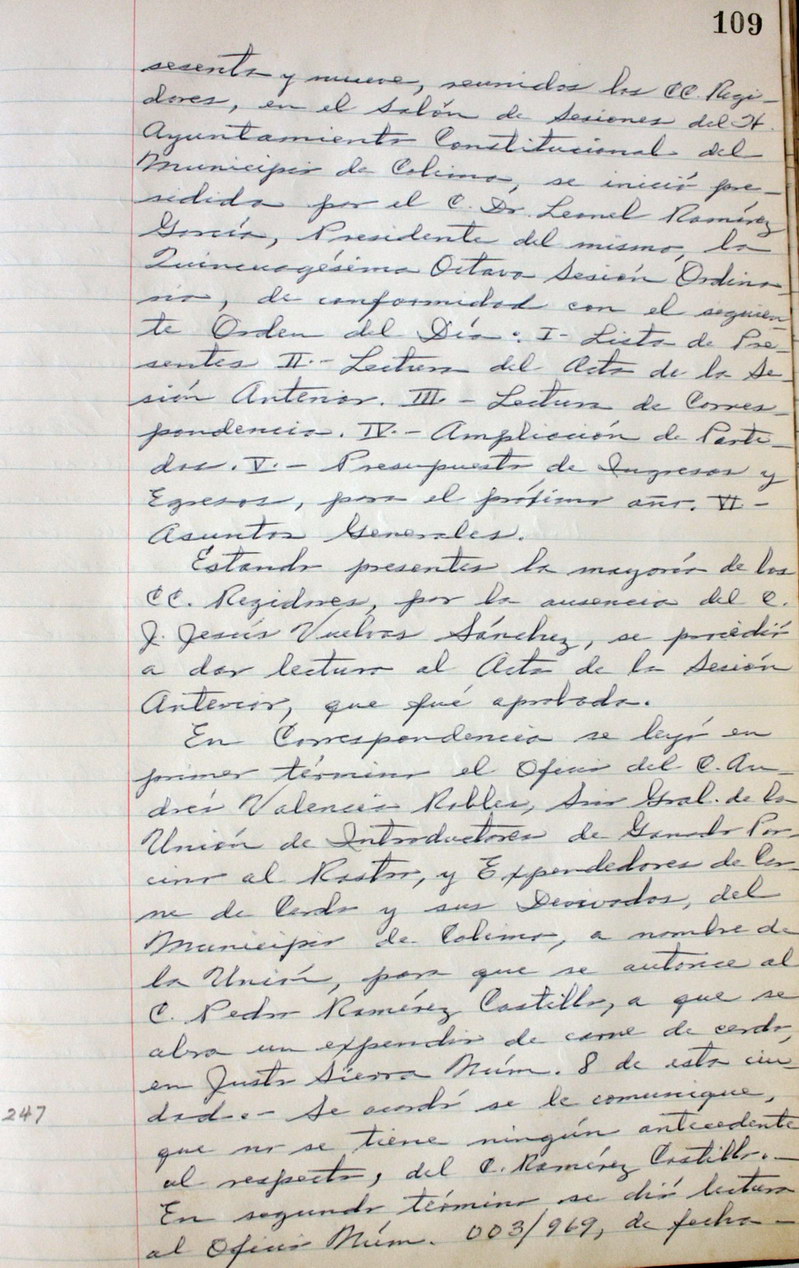 109
sesenta y nueve, reunidos los CC. Regi-
dores, en el Salón de Sesiones del H.
Ayuntamiento Constitucional del
Municipio de Colima, se inició pre-
sidida por el C. Dr. Leonel Ramírez
García, Presidente del mismo, la
Quincuagésima Octava Sesión Ordina-
ria, de conformidad con el siguien-
te Orden del Día: I- Lista de Pre-
sentes II.- Lectura del Acta de la Se-
sión Anterior. III.- Lectura de Corres-
pondencia. IV.- Ampliación de Parti-
das. V.- Presupuesto de Ingresos y
Egresos, para el próximo año. VI-
Asuntos Generales.
Estando presentes la mayoría de los
CC. Regidores, por la ausencia del C.
J. Jesús Vuelvas Sánchez, se procedió
a dar lectura al Acta de la Sesión
Anterior, que fué aprobada.
En Correspondencia se leyó en
primer término el Oficio del C. An-
drés Valencia Robles, Srio Gral. de la
Unión de Introductores de Ganado Por-
cino al Rastro, y Expendedores de Car-
ne de Cerdo y sus Derivados, del
Municipio de Colima, a nombre de
la Unión, para que se autorice al
C. Pedro Ramírez Castillo, a que se
abra un expendio de carne de cerdo,
en Justo Sierra Núm. 8 de esta ciu-
247 dad.- Se acordó se le comunique,
que no se tiene ningún antecedente
al respecto, del C. Ramírez Castillo.-
En segundo término se dió lectura
al Oficio Núm. 003/969, de fecha-